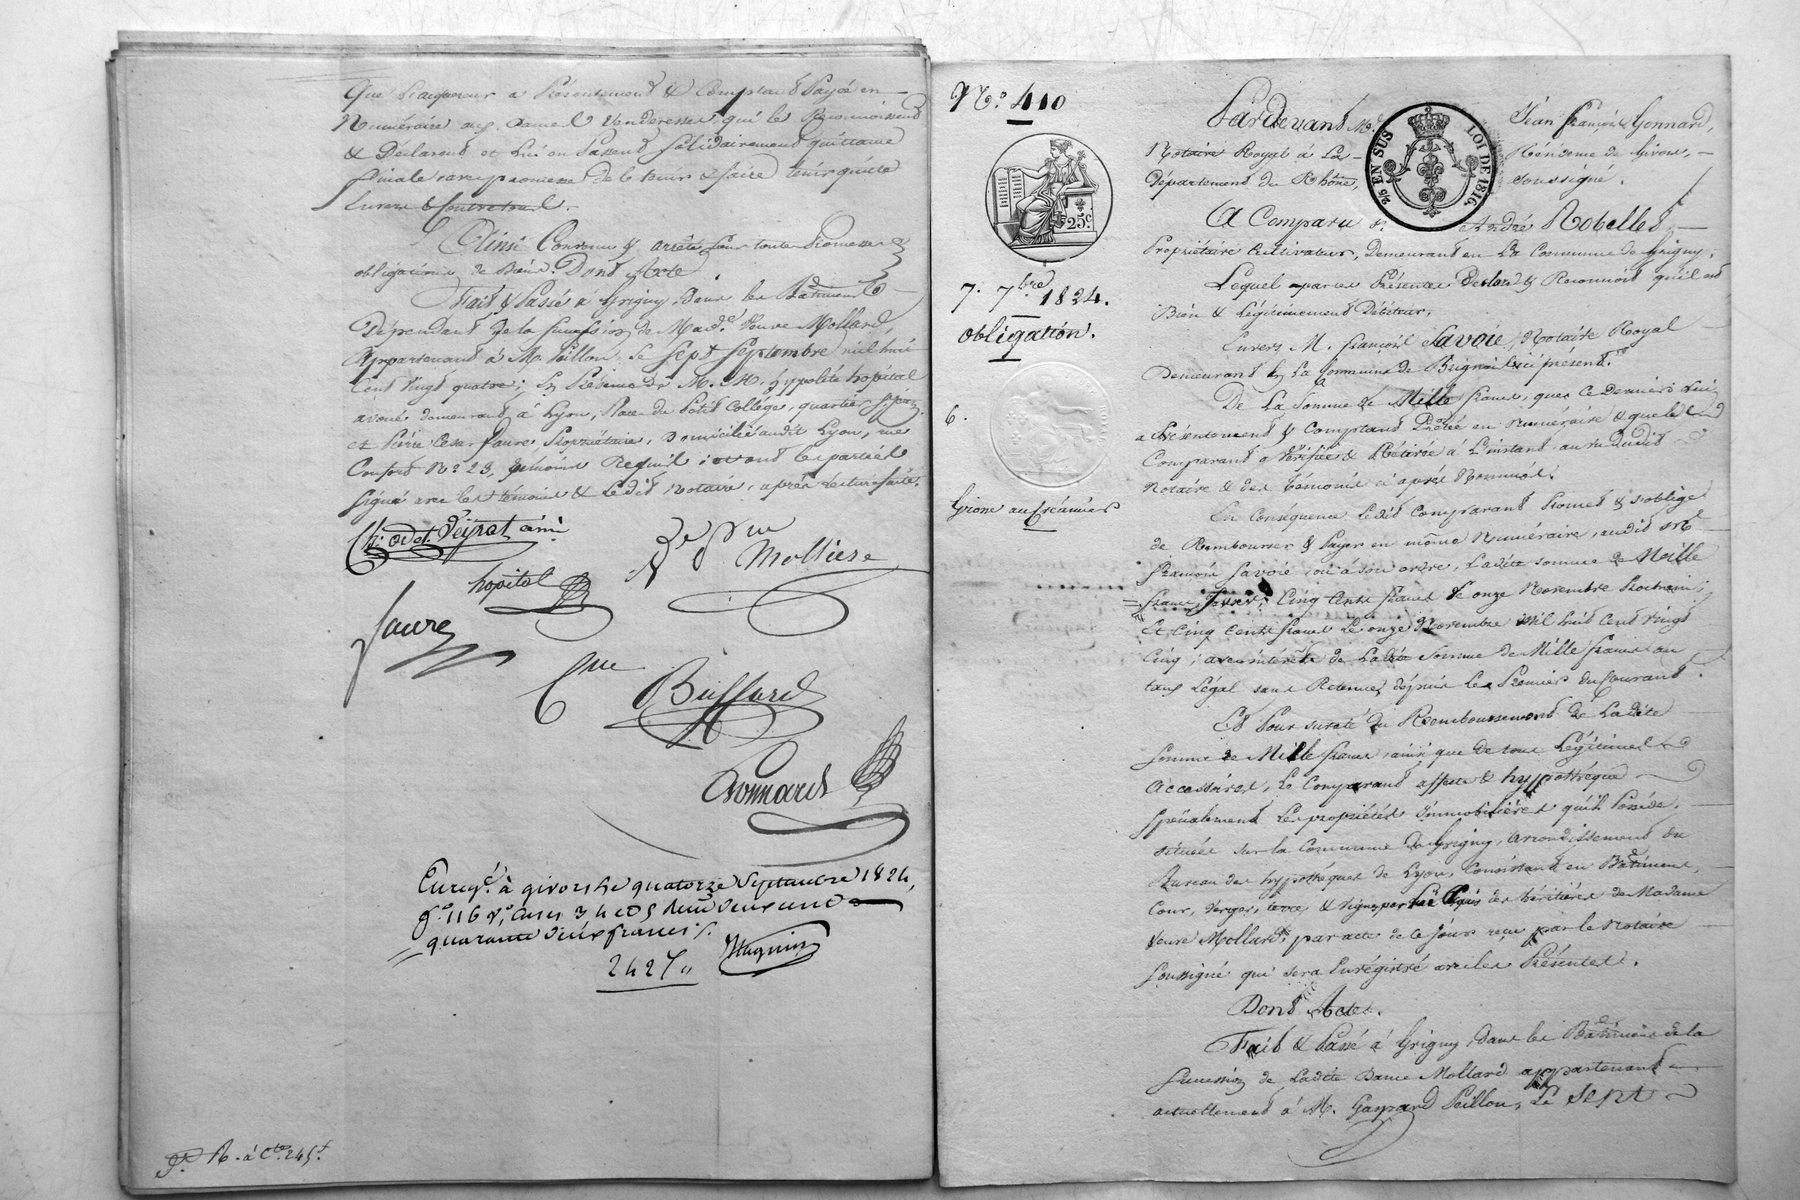 Que l'acquereur a Présentement & Comptant Payée en
Numéraire aux Dames Venderesses qui le Reconnoissent
& Déclarent et lui en Passent solidairement quittance
finale avec promesse de le tenir & faire tenir quitte
Envers & Contre tous.
Ainsi Convenu & arrêté sous toutes Promesses
obligations de Droit. Dont Acte
Fait & Passé à Grigny, Dans les Bâtiments
Dépendant de la succession de Made. Veuve Mollard,
Appartenant à M. Peillon, le sept septembre mil huit
Cent vingt quatre; En Présence de M. M. hyppolite hopital
avoué demeurant à Lyon, Place du Petit Collège, quartier
et Pierre Cesar faure Propriétaire, Domicilié audit Lyon, rue
Confort No. 23, témoins Requis; ont les parties
signé avec les témoins & Ledit Notaire, après Lecture faite.
hopital
Mollière
faure
Buffard
Gonnard
Enregé. à givors le quatorze Septembre 1824,
fo. 116 Vo. Cases 3 4 et 5 Reçu deux cent
quarante deux francs
242 f "
R. à Cte. 245 f
No. 410
25c.
2/5 EN SUS
LOI DE 1816.
7. 7bre 1824.
obligation.
6.
Grosse au Créancier
Pardevant Me. Jean françois Gonnard,
Notaire Royal à La Résidence de Givors,
Département du Rhône, soussigné.
A Comparu sr. André Robelles,
Propriétaire Cultivateur, Demeurant en La Commune de Grigny,
Lequel par ces Présentes Déclare & Reconnoit qu'il est
Bien & Légitimement Débiteur,
Envers M. françois Savoie, Notaire Royal
Demeurant en La Commune de Brignais ici présent.
De La Somme de Mille francs, que ce Dernier lui
a Présentement & Comptant Prêtée en Numéraire & que le
Comparant a Vérifiée & Rétirée à L'instant au vu dudit
Notaire & des témoins ci après Nommés.
En Conséquence Ledit Comparant Promet & s'oblige
de Rembourser & Payer en même Numéraire, audit Me.
francois Savoie, ou à son ordre, Ladite somme de Mille
francs, savoir; Cinq Cents francs le onze Novembre Prochain;
Et Cinq Cents francs Le onze Novembre Mil huit Cent vingt
Cinq; avec intérêts de Ladite Somme de Mille francs au
taux Légal sans Retenue, depuis Le Premier du Courant.
Et Pour sureté du Remboursement de Ladite
somme de Mille francs, ainsi que de tous Légitimes
Accessoires, Le Comparant affecte & hyppothéque
spécialement Les propriétés Immobilières qu'il Possède,
situées sur la Commune de Grigny, Arrondissement du
Bureau des hypothéques de Lyon, Consistant en Bâtiment,
Cour, Verger, terre & Vigne, par lui acquis des héritières de Madame
Veuve Mollard, par acte de ce jour reçu par le Notaire
soussigné qui sera Enrégistré avec les Présentes.
Dont Acte.
Fait & Passé à Grigny, Dans les Bâtiments de la
succession de Ladite Dame Mollard appartenant
actuellement à M. Gaspard Peillon, Le Sept